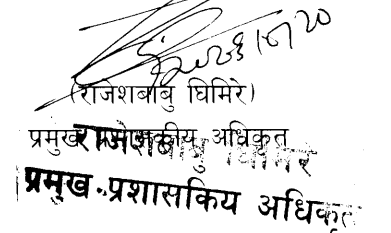 (राजेशबाबु घिमिरे)
प्रमुख प्रशासकीय अधिकृत
राजेशबाबु घिमिरे
प्रमुख प्रशासकिय अधिकृत